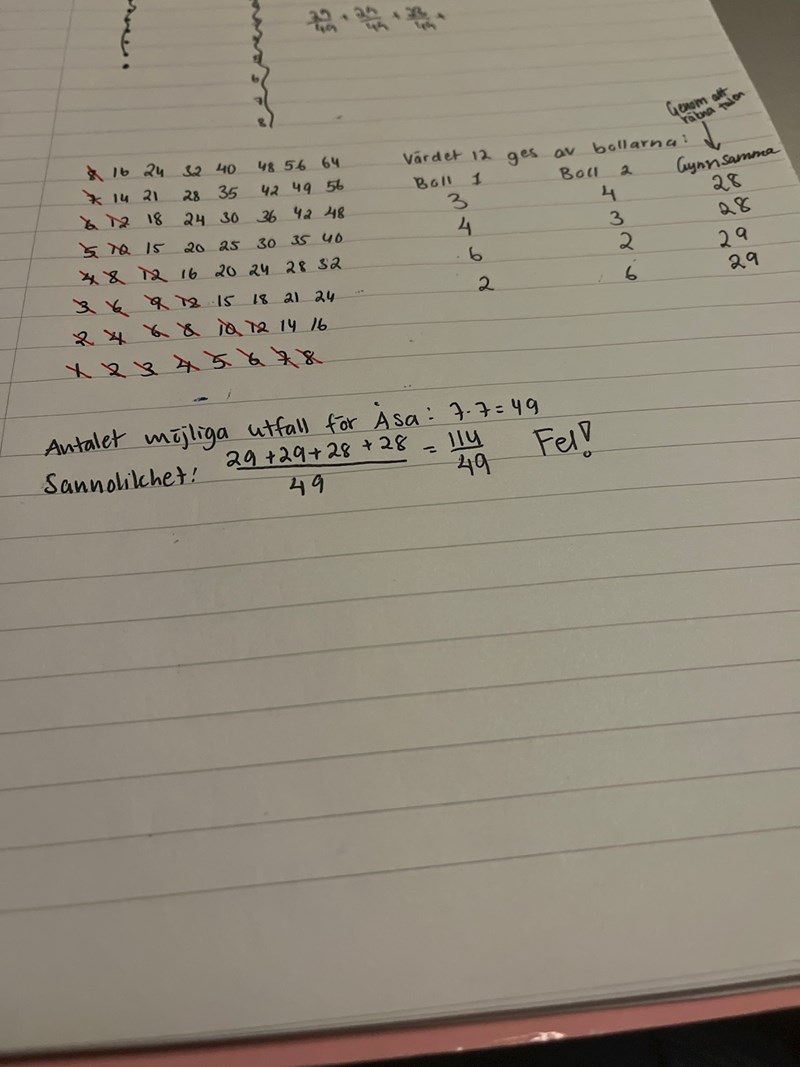 29/49 + 29/49 + 28/49 +
6
7
8
Genom att
räkna talen
8 16 24 32 40 48 56 64
7 14 21 28 35 42 49 56
6 12 18 24 30 36 42 48
5 10 15 20 25 30 35 40
4 8 12 16 20 24 28 32
3 6 9 12 15 18 21 24
2 4 6 8 10 12 14 16
1 2 3 4 5 6 7 8
Värdet 12 ges av bollarna:
Boll 1 Boll 2 Gynnsamma
3 4 28
4 3 28
6 2 29
2 6 29
Antalet möjliga utfall för Åsa: 7·7=49
Sannolikhet: (29+29+28+28)/49 = 114/49 Fel!